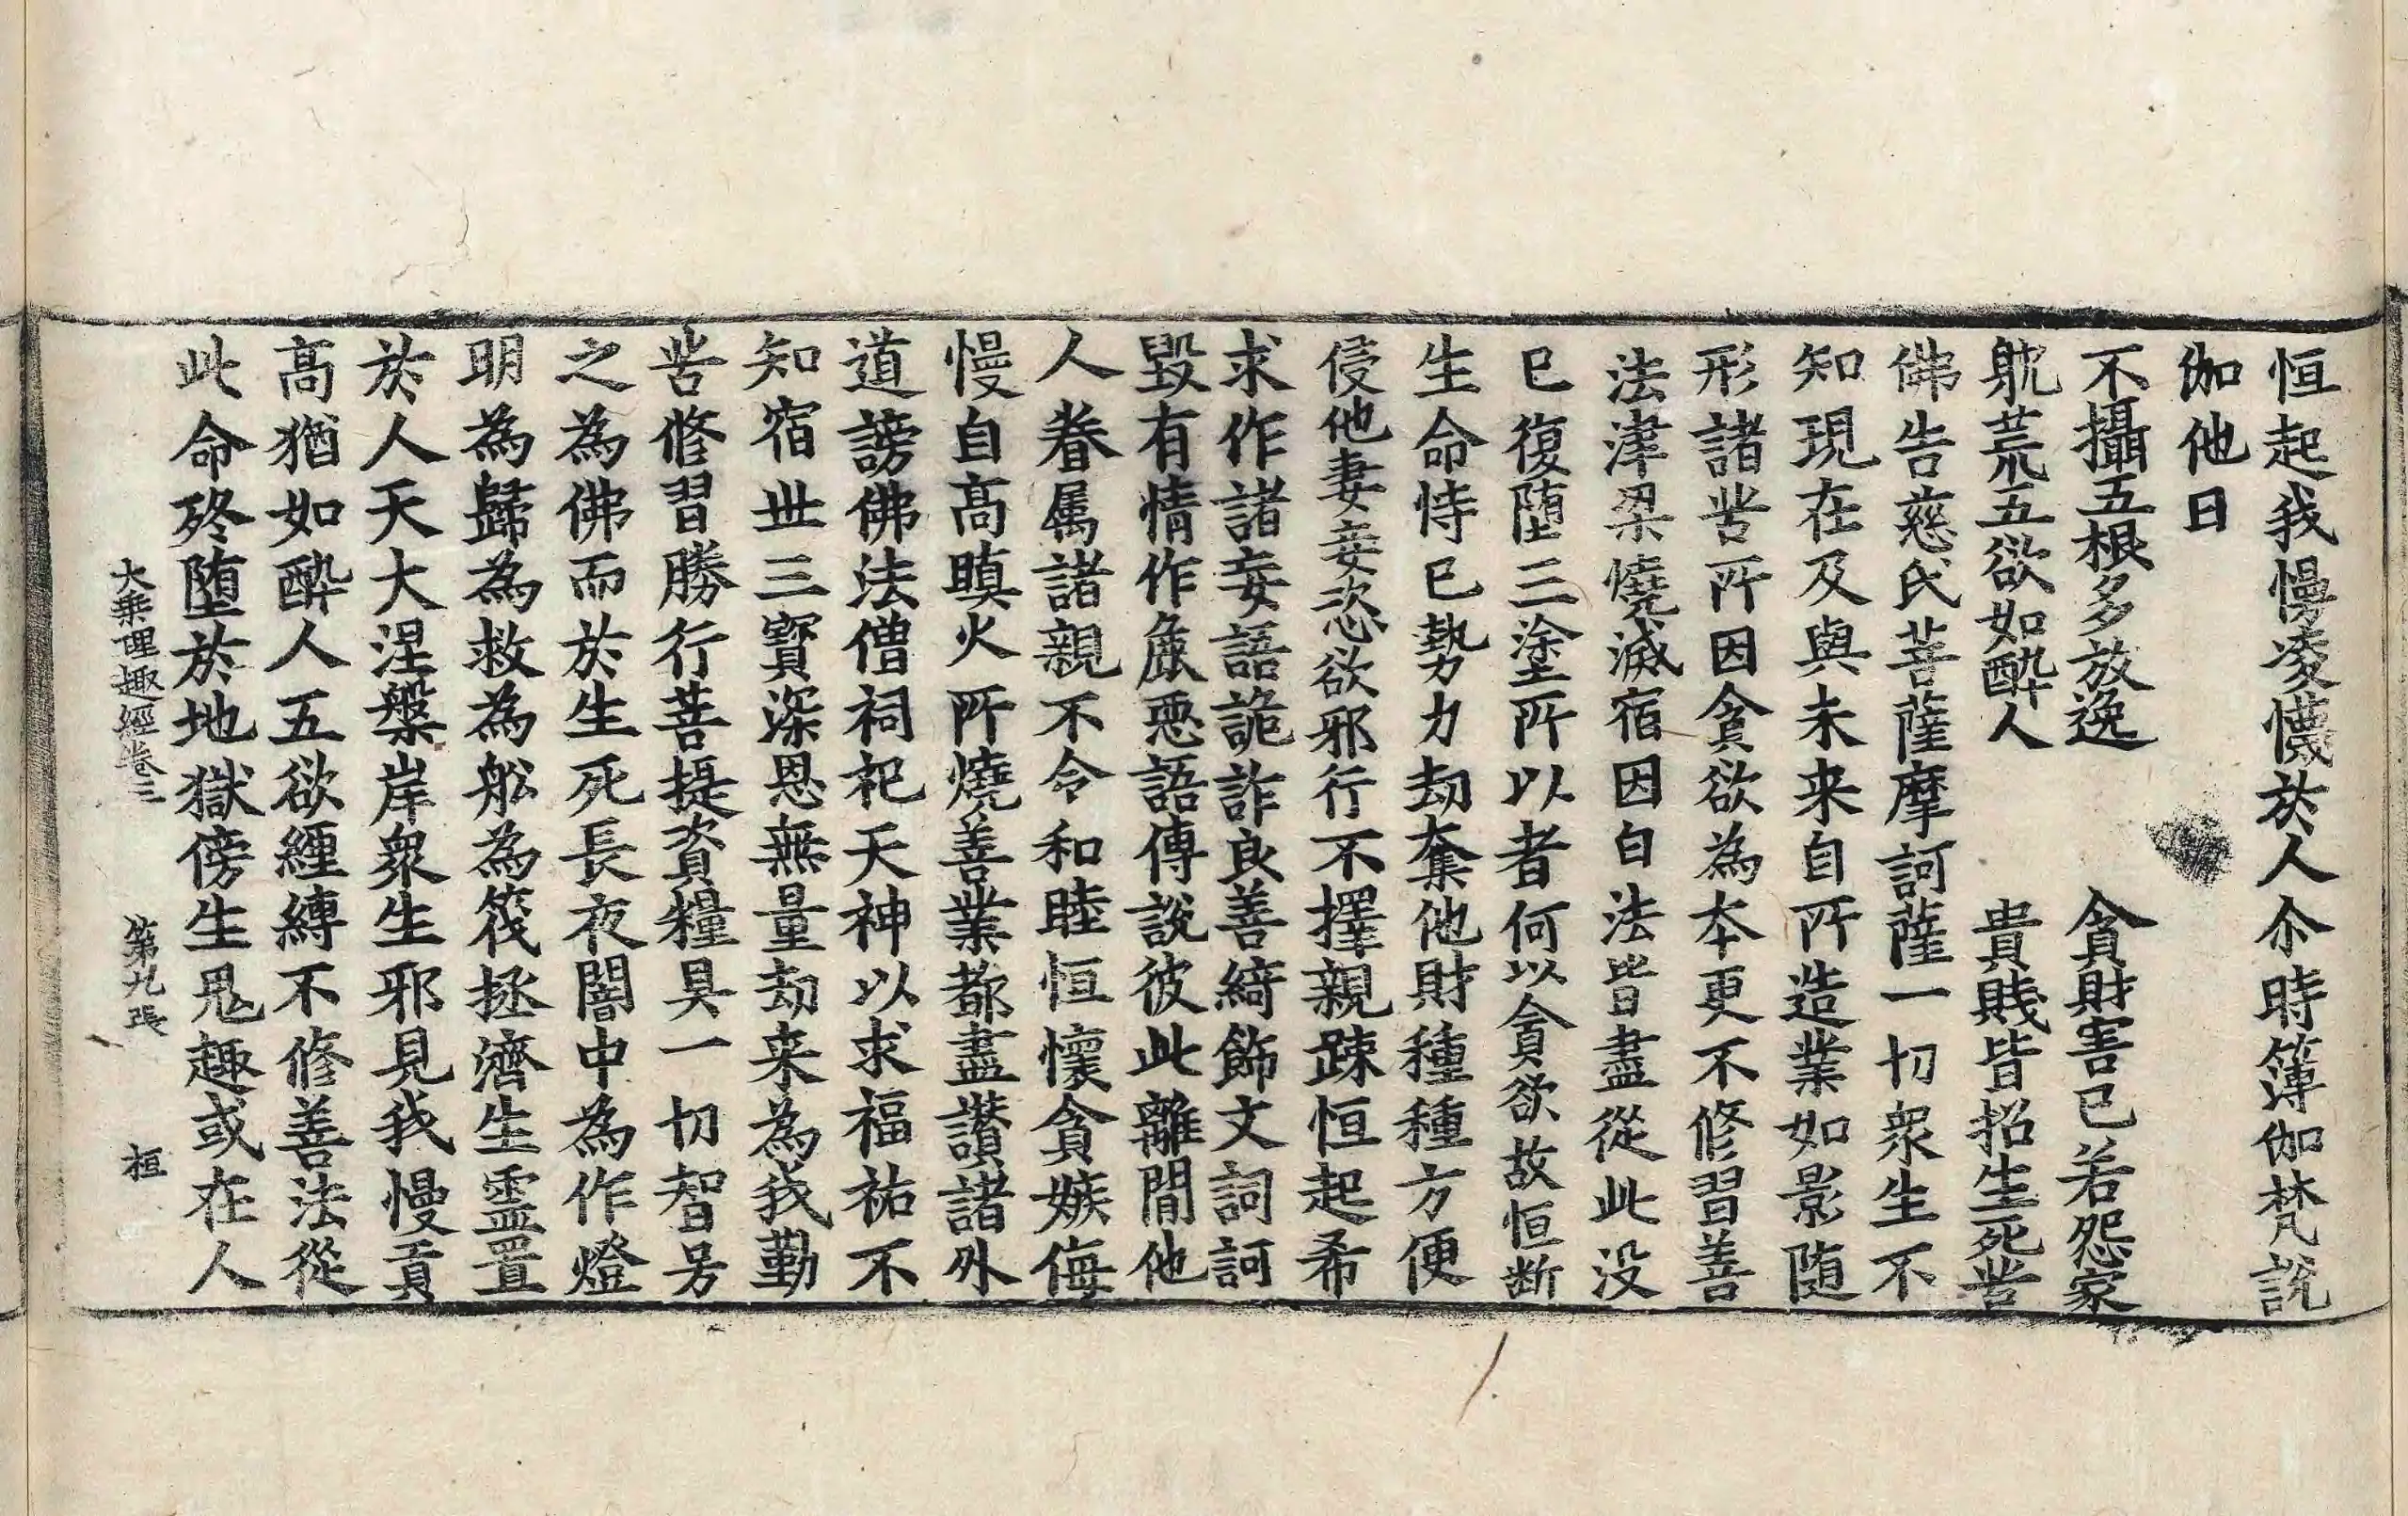 恒起我慢凌懱於人尒時簿伽梵說
伽他曰
不攝五根多放逸　貪財害已若怨家
躭荒五欲如醉人　貴賎皆招生死苦
佛告慈氏菩薩摩訶薩一切衆生不
知現在及與未来自所造業如影随
形諸苦所因貪欲為本更不修習善
法津梁燒滅宿因白法皆盡從此没
已復堕三塗所以者何以貪欲故恒断
生命恃已勢力劫奪他財種種方便
侵他妻妾恣欲邪行不擇親踈恒起希
求作諸妄語詭詐良善綺飾文詞訶
毀有情作麁惡語傳說彼此離間他
人眷属諸親不令和睦恒懷貪嫉侮
慢自髙瞋火所燒善業都盡讃諸外
道謗佛法僧祠祀天神以求福祐不
知宿世三寳深恩無量劫来為我勤
苦修習勝行菩提資糧具一切智号
之為佛而於生死長夜闇中為作燈
明為歸為救為舩為筏拯濟生霊置
於人天大涅槃岸衆生邪見我慢貢
髙猶如醉人五欲纏縛不修善法從
此命終堕於地獄傍生鬼趣或在人
大乘理趣經卷三　第九張　桓